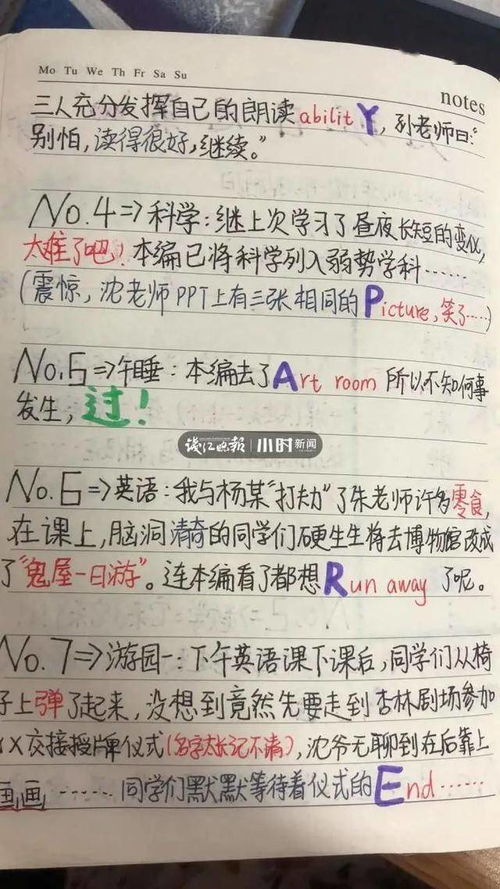 Mo Tu We Th Fr Sa Su
notes
三人充分发挥自己的朗读abilitY，孙老师曰：
别怕，读得很好，继续。”
No.4⇒科学：继上次学习了昼夜长短的变化，
太难了吧）本编已将科学列入弱势学科……
（震惊，沈老师PPT上有三张相同的Picture，笑了……）
No.5⇒午睡：本编去了Art room 所以不知何事
发生，过！
钱江晚报 小时新闻
No.6⇒英语：我与杨某“打劫”了朱老师许多零食，
在课上，脑洞清奇的同学们硬生生将去博物馆改成
了“鬼屋一日游”。连本编看了都想Run away 了呢。
No.7⇒游园一：下午英语课下课后，同学们从椅
子上弹了起来，没想到竟然先要走到杏林剧场参加
XX交接授牌仪式（名字太长记不清），沈爷无聊到在后靠上
画画……同学们默默等待着仪式的End……